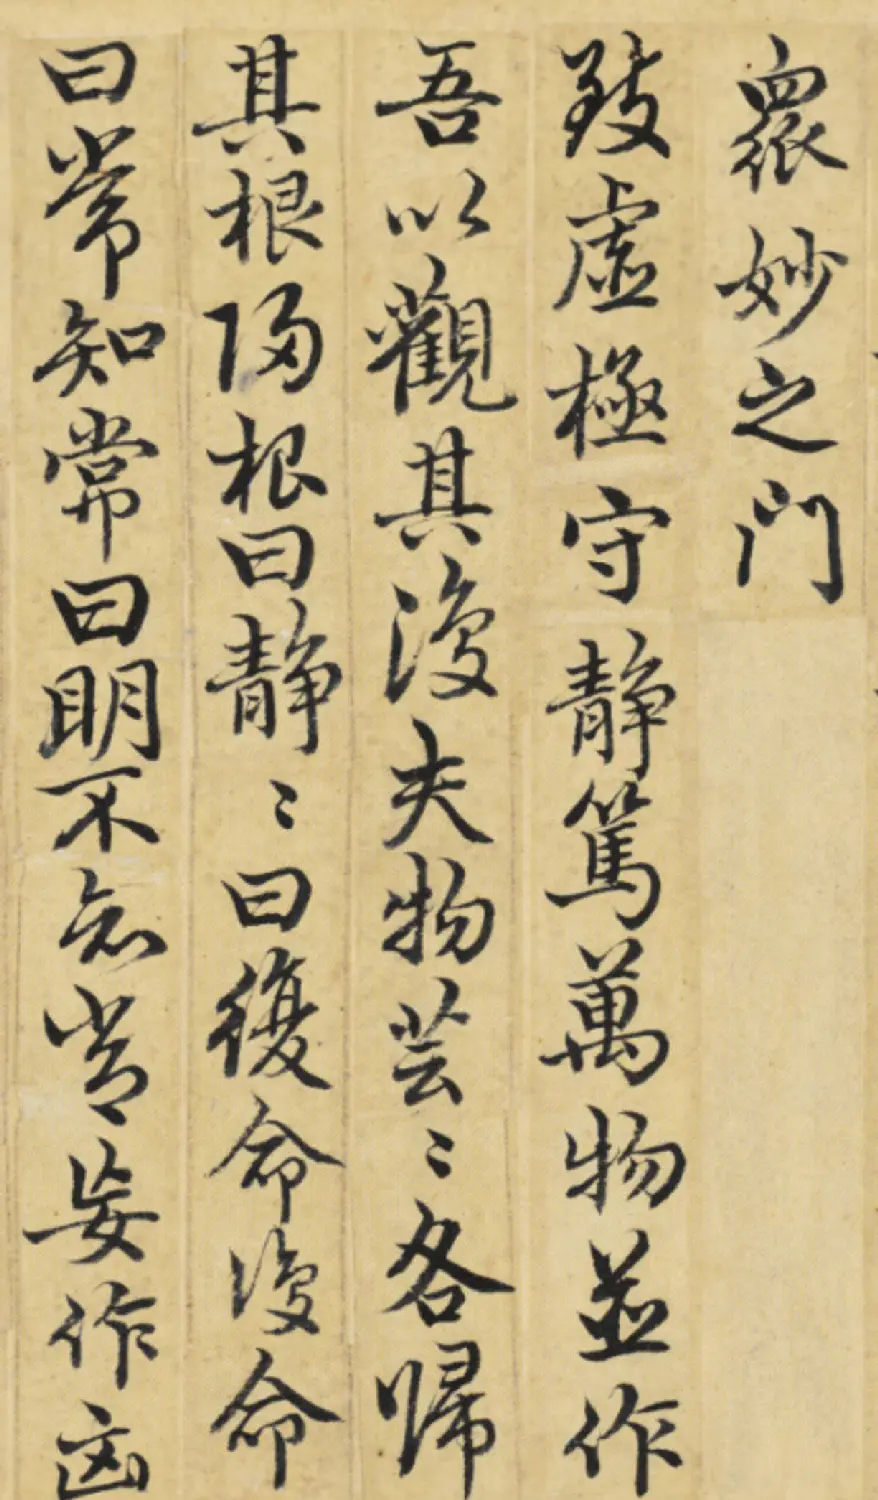 眾妙之門
致虛極守靜篤萬物並作
吾以觀其復夫物芸〻各歸
其根歸根曰靜〻曰復命復命
曰常知常曰明不知常妄作凶